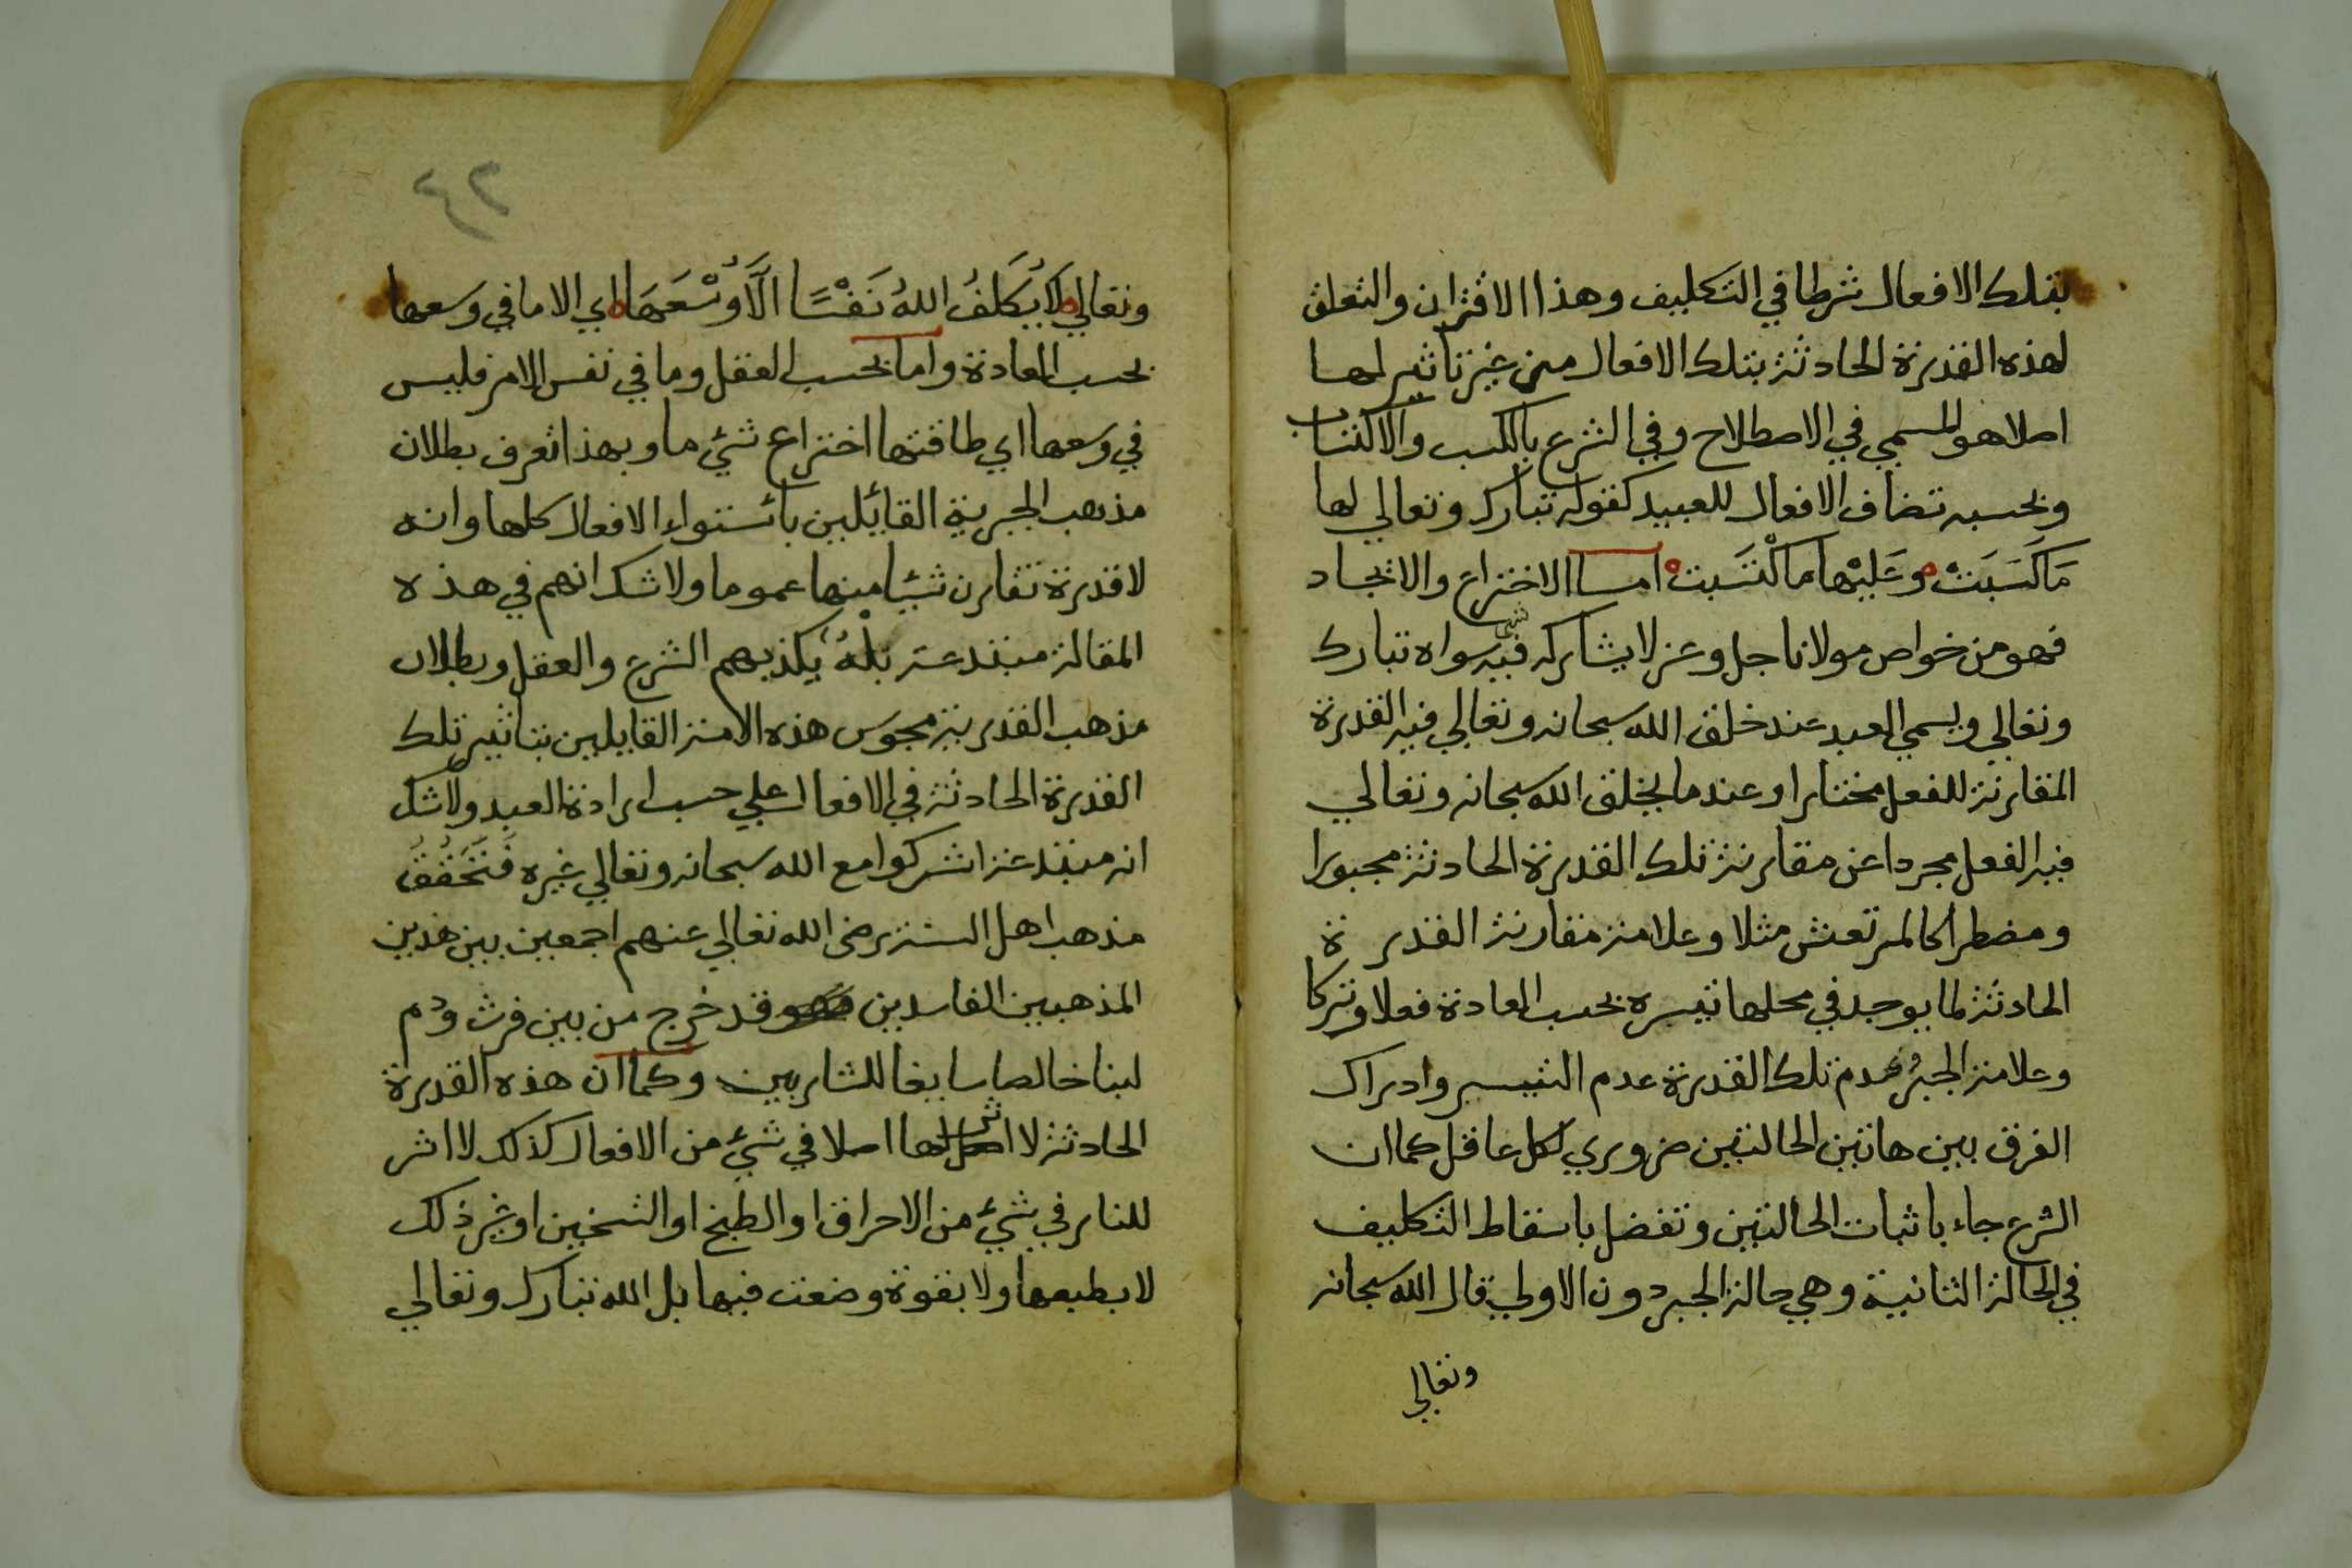 بتلك الافعال شرطا في التكليف وهذا الاقتران والتعلق
لهذه القدرة الحادثة بتلك الافعال من غير تاثير لها
اصلا هو المسمي في الاصطلاح وفي الشرع بالكسب والاكتساب
وبحسبه تضاف الافعال للعبيد كقوله تبارك وتعالي لها
مَا كَسَبَتْ وَعَلَيْهَا مَا كْتَسَبَتْ اما الاختراع والايجاد
فهو من خواص مولانا جل وعز لا يشاركه فيه شي سواه تبارك
وتعالي ويسمي العبد عند خلق الله سبحانه وتعالي فيه القدرة
المقارنة للفعل مختارا وعند ما يخلق الله سبحانه وتعالي
فيه الفعل مجردا عن مقارنة تلك القدرة الحادثة مجبورا
ومضطرا كالمرتعش مثلا وعلامة مقارنة القدرة
الحادثة لما يوجد في محلها تيسره بحسب العادة فعلا وتركا
وعلامة الجبر وعدم تلك القدرة عدم التيسر وادراك
الفرق بين هاتين الحالتين ضروري لكل عاقل كما ان
الشرع جاء باثبات الحالتين وتفضل باسقاط التكليف
في الحالة الثانية وهي حالة الجبر دون الاولي قال الله سبحانه
وتعالي
٤٢
وتعالي لَا يُكَلِّفُ اللهُ نَفْسًا الَّا وُسْعَهَا اي الا ما في وسعها
بحسب العادة واما بحسب العقل وما في نفس الامر فليس
في وسعها اي طاقتها اختراع شيء ما وبهذا تعرف بطلان
مذهب الجبرية القائلين بائستواء الافعال كلها وانه
لا قدرة تقارن شيئا منها عموما ولا شك انهم في هذه
المقالة مبتدعة بُلْهُ يكذبهم الشرع والعقل وبطلان
مذهب القدرية مجوس هذه الامة القايلين بتاثير تلك
القدرة الحادثة في الافعال علي حسب ارادة العبد ولا شك
انه مبتدعة اشركوا مع الله سبحانه وتعالي غيره فَتَحَقَّقَ
مذهب اهل السنة رضي الله تعالي عنهم اجمعين بين هذين
المذهبين الفاسدين فهو قد خرج من بين فرث ودم
لبنا خالصا سايغا للشاربين وكما ان هذه القدرة
الحادثة لا اثر لها اصلا في شيء من الافعال كذلك لا اثر
للنار في شيء من الاحراق او الطبخ او التسخين او غير ذلك
لا بطبعها ولا بقوة وضعت فيها بل الله تبارك وتعالي